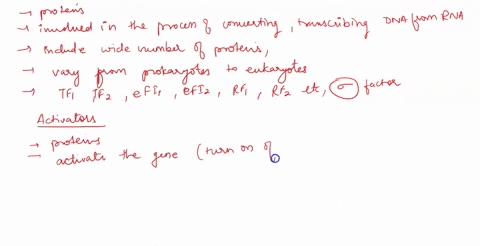 → proteins
→ involved in the process of converting, transcribing DNA from RNA
→ include wide number of proteins,
→ vary from prokaryotes to eukaryotes
→ TF1, IF2, eFI1, eFI2, RF1, RF2 etc, σ factor
Activators
→ proteins
→ activate the gene (turn on of